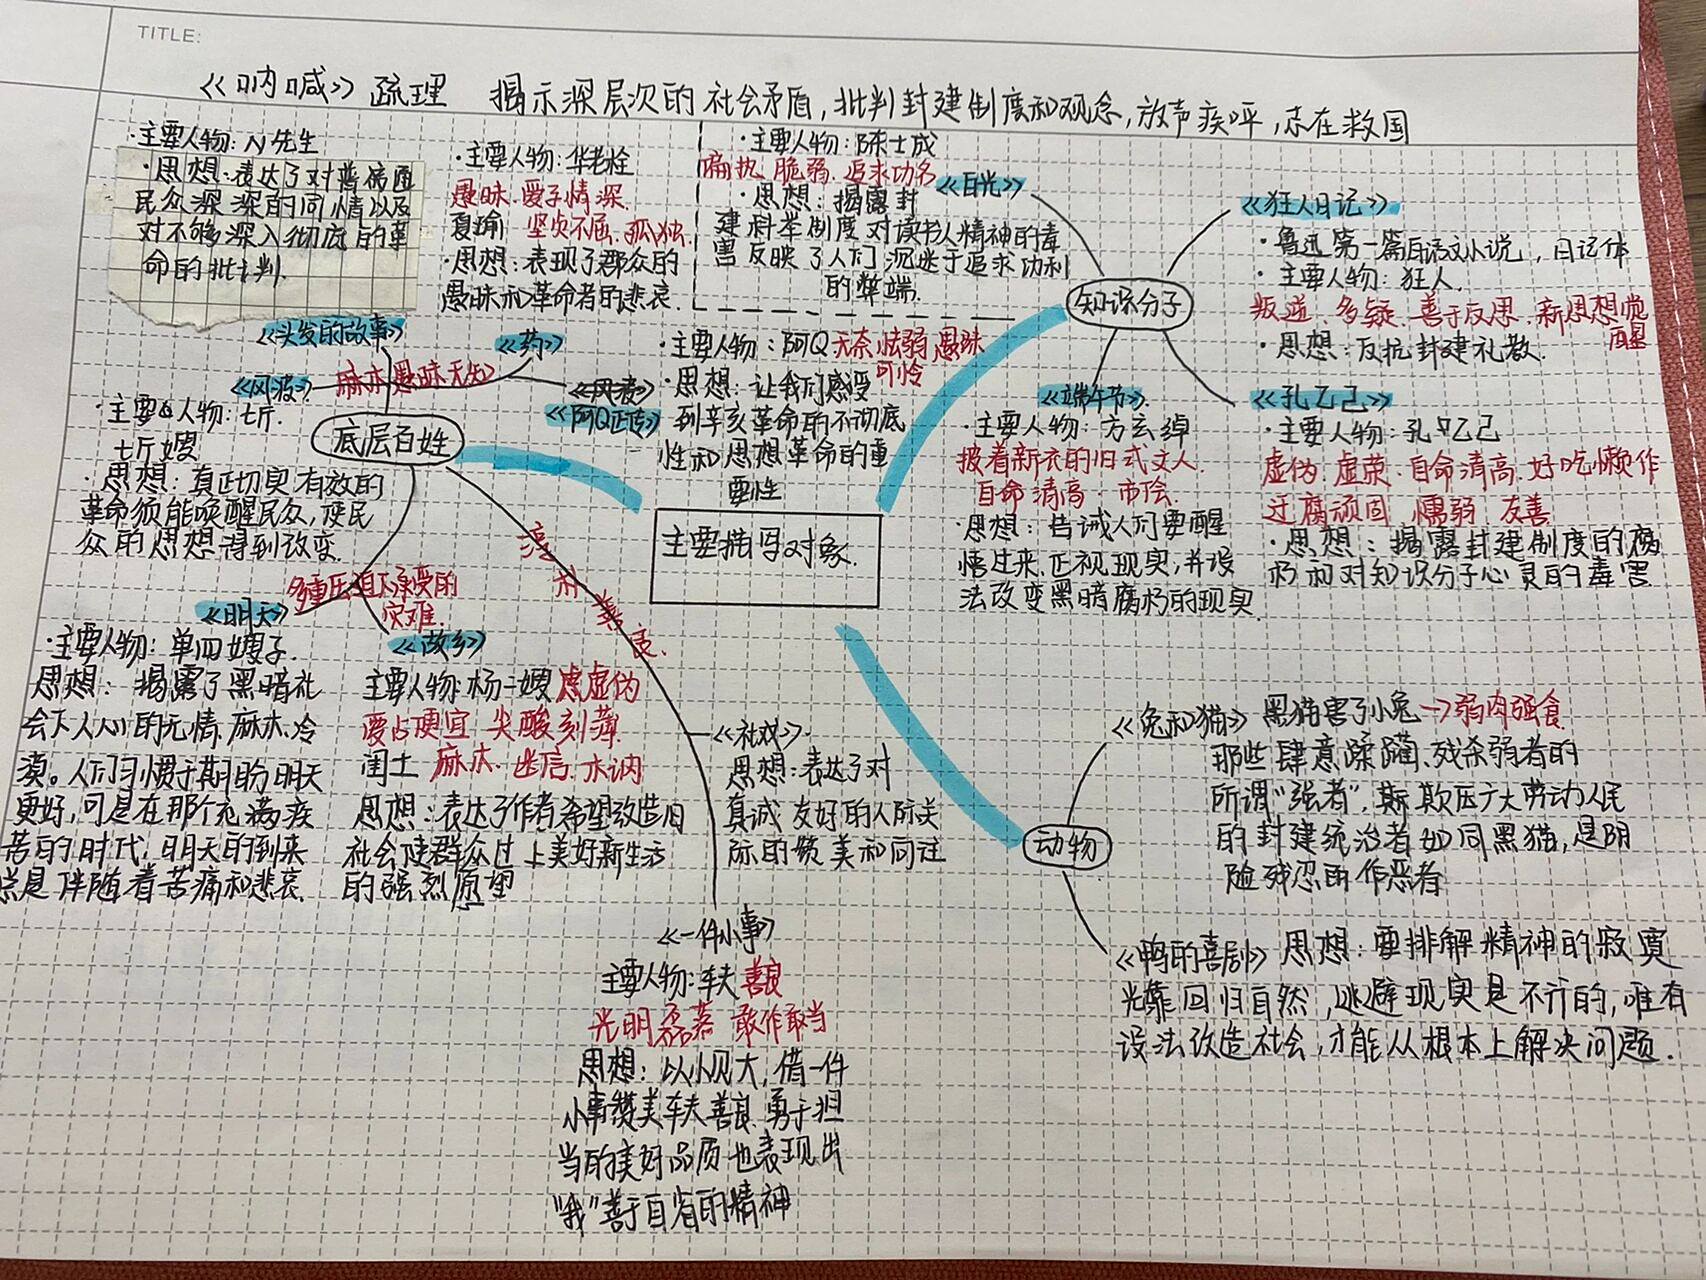 TITLE:
《呐喊》疏理 揭示深层次的社会矛盾,批判封建制度和观念,放声疾呼,志在救国
·主要人物:N先生
·思想:表达了对普通
民众深深的同情以及
对不够深入彻底的革
命的批判.
·主要人物:华老栓
愚昧.爱子情深.
夏瑜 坚贞不屈.孤独.
·思想:表现了群众的
愚昧和革命者的悲哀.
·主要人物:陈士成
偏执 脆弱.追求功名
·思想:揭露封
建科举制度对读书人精神的毒
害反映了人们沉迷于追求功利
的弊端.
《白光》
知识分子
《狂人日记》
·鲁迅第一篇白话文小说,日记体
·主要人物:狂人.
叛逆.多疑.善于反思.新思想觉
醒
·思想:反抗封建礼教.
《孔乙己》
·主要人物:孔乙己
虚伪 虚荣.自命清高.好吃懒作
迂腐顽固 懦弱 友善
·思想:揭露封建制度的腐
朽和对知识分子心灵的毒害
《端午节》
·主要人物:方玄绰
披着新衣的旧式文人
自命清高.市侩.
·思想:告诫人们要醒
悟过来.正视现实,并设
法改变黑暗腐朽的现实
《头发的故事》
《药》
《风波》
麻木愚昧无知
《风波》
《阿Q正传》
·主要人物:阿Q 无奈 怯弱 愚昧
可怜
·思想:让我们感受
到辛亥革命的不彻底
性和思想革命的重
要性
底层百姓
·主要人物:七斤.
七斤嫂
·思想:真正切实有效的
革命须能唤醒民众,使民
众的思想得到改变.
主要描写对象.
多重压迫下承受的
灾难.
淳朴善良.
《明天》
·主要人物:单四嫂子.
思想:揭露了黑暗社
会下人心的无情.麻木.冷
漠。人们习惯于期盼明天
更好,可是在那个充满疾
苦的时代,明天的到来
总是伴随着苦痛和悲哀.
《故乡》
主要人物:杨二嫂 虚伪
爱占便宜 尖酸刻薄.
闰土 麻木.迷信.木讷
思想:表达了作者希望改造旧
社会使群众过上美好新生活
的强烈愿望
《社戏》.
思想:表达了对
真诚 友好的人际关
际的赞美和向往
《一件小事》
主要人物:车夫 善良
光明磊落 敢作敢当
思想:以小见大,借一件
小事赞美车夫善良.勇于担
当的美好品质也表现出
"我"善于自省的精神
动物
《兔和猫》黑猫害了小兔→弱肉强食.
那些肆意蹂躏、残杀弱者的
所谓"强者",欺压广大劳动人民
的封建统治者如同黑猫,是阴
险残忍的作恶者
《鸭的喜剧》思想:要排解精神的寂寞
光靠回归自然,逃避现实是不行的,唯有
设法改造社会,才能从根本上解决问题.